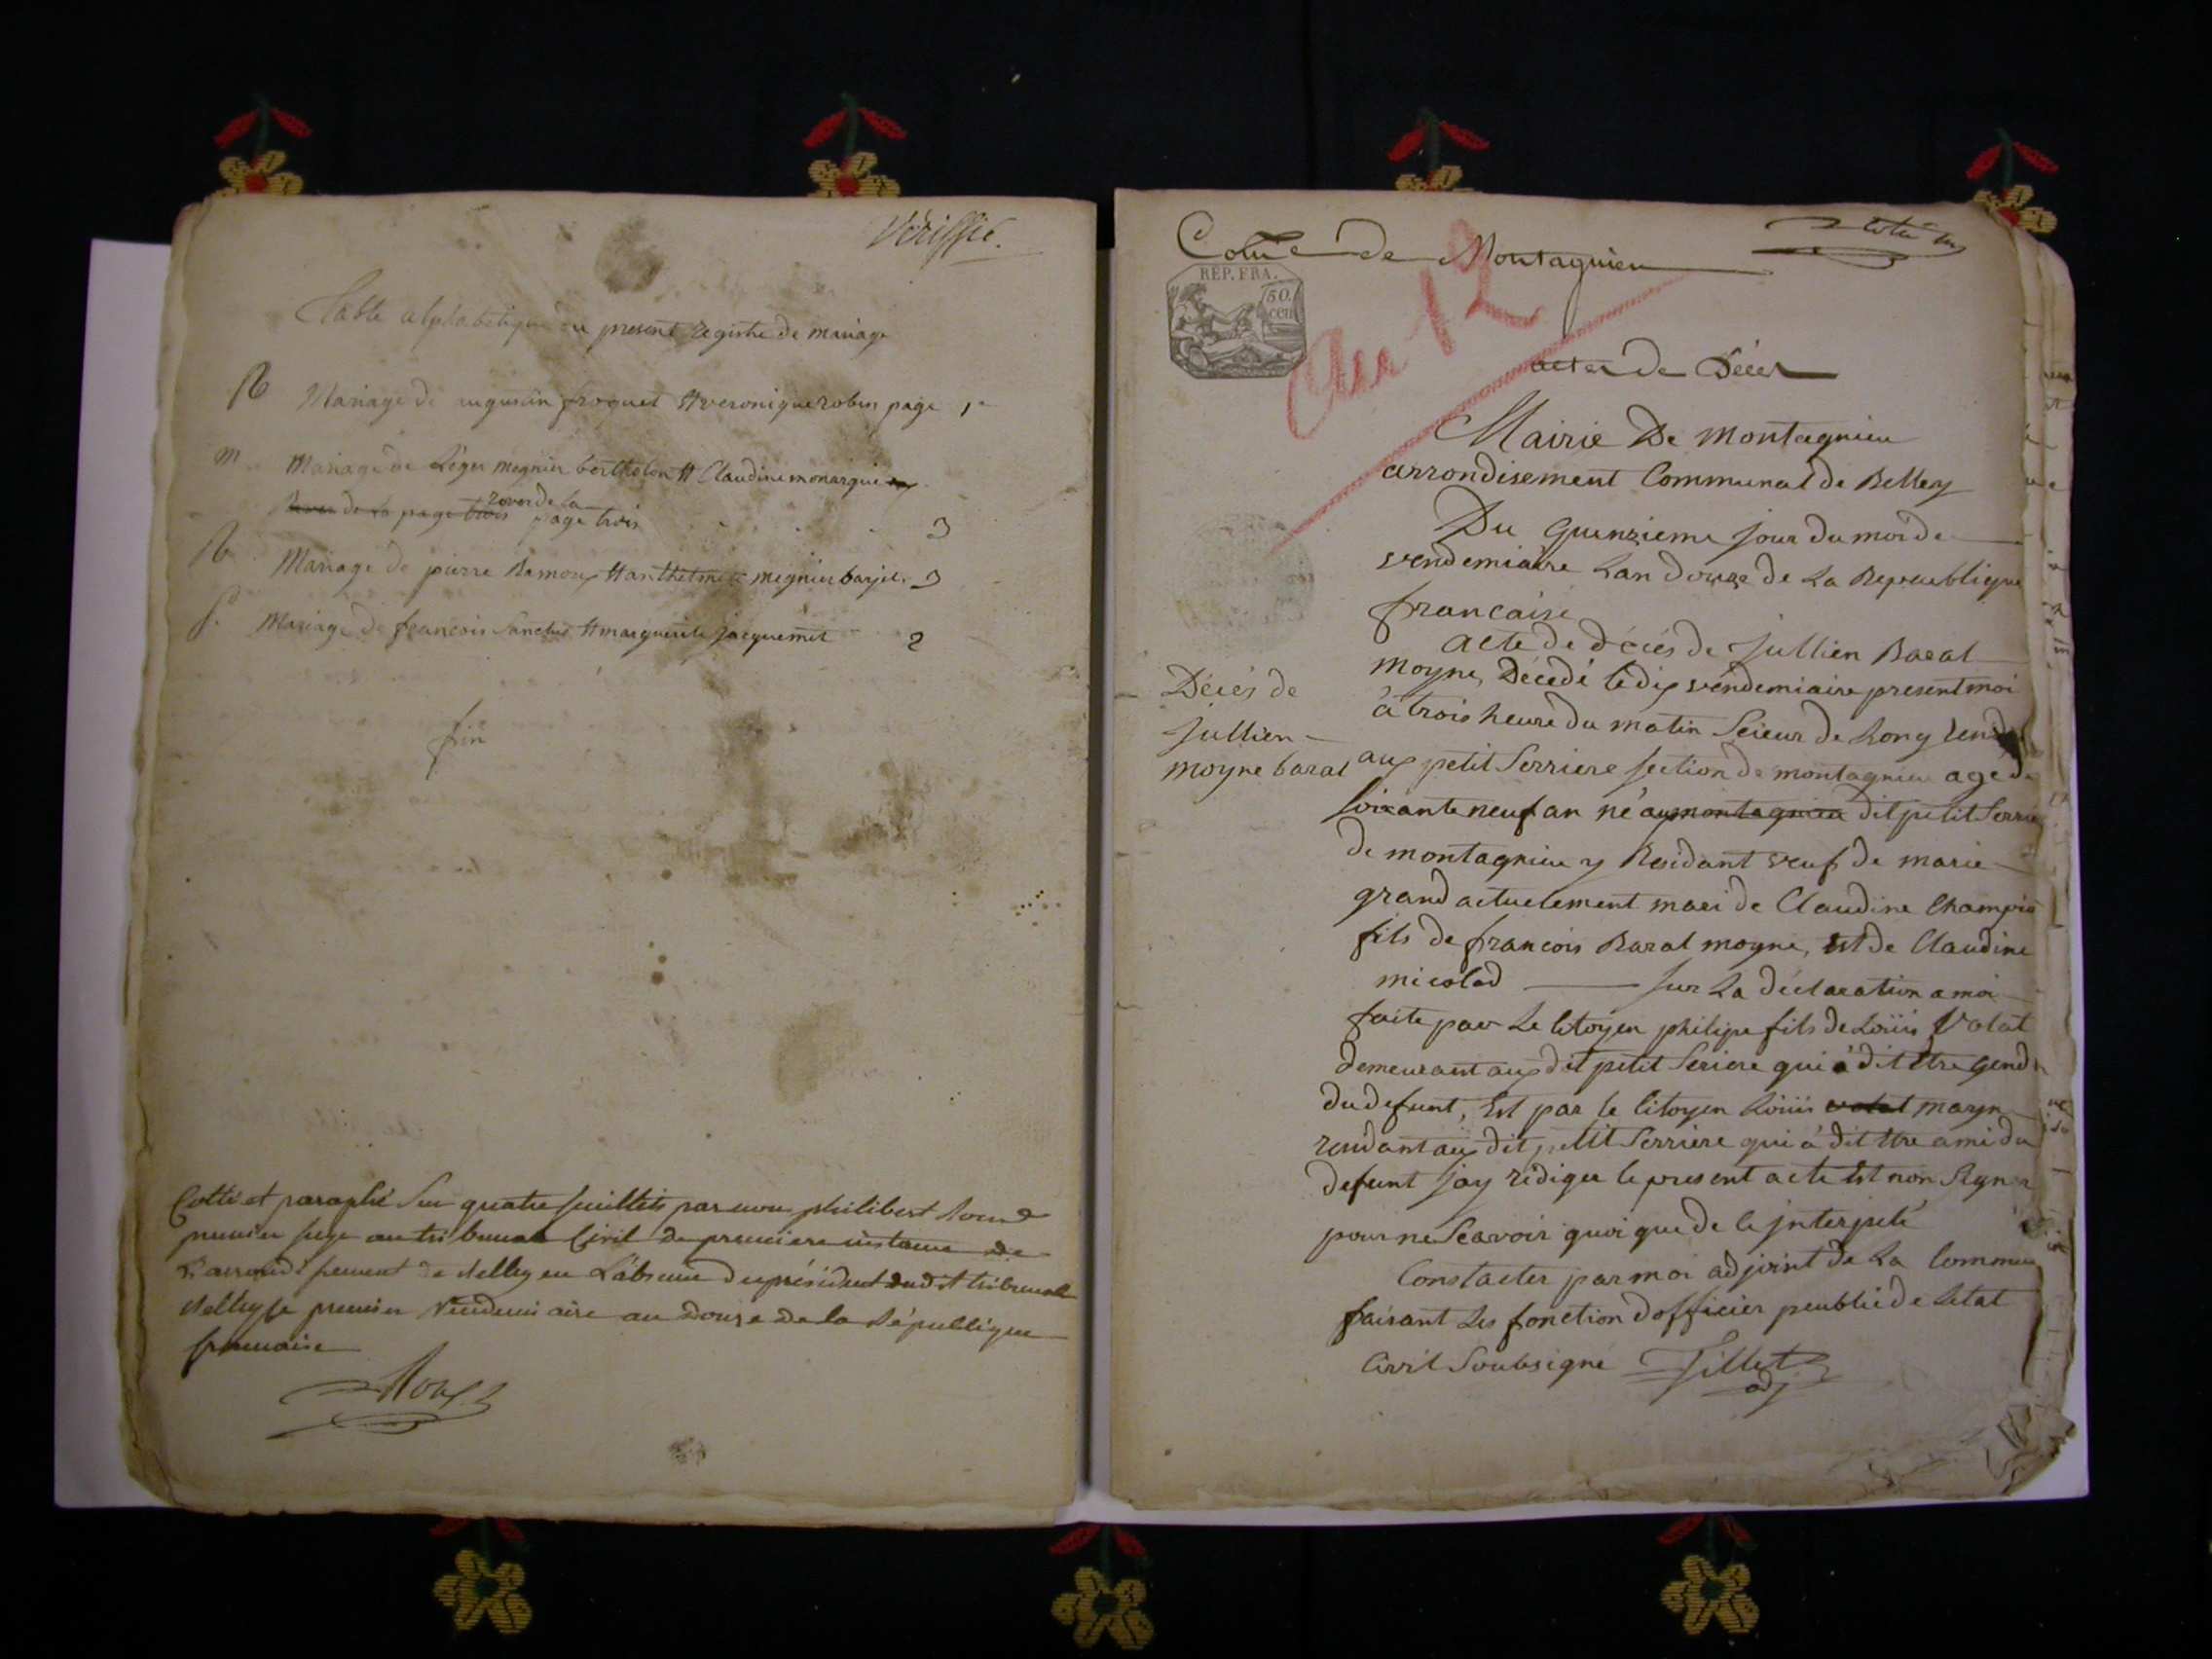 Vériffié.
Table alphabetique du present registre de mariage
R Mariage de augustin froquet Et veronique robin page 1er
m Mariage de Léger megnier bertholon Et Claudine monarque
page trois
revers de la page trois 3
R Mariage de pierre Ramoux Et anthelmette megnier barjet 3
S. Mariage de francois Sanctus Et marguerite jacquemet 2
fin
Cotté et paraphé Sur quatre feuillets par nous philibert
premier juge au tribunal Civil de premiere instance de
L'arrondissement de Belley en L'absence du président dudit tribunal
Belley le premier Vendemiaire an douze de la République
francaise
Roux
Cotté
Cotue de Montagnieu
RÉP. FRA.
50.
cen
An 12
actes de Décès
Mairie De montagnieu
arrondisement Communal de Belley
Du quinzieme jour du mois de
vendemiaire Lan douze de La Republique
francaise
acte de décés de jullien Baral
moyne, Décedé le dix vendemiaire present moi
à trois heure du matin Scieur de Long
Décès de
jullien
moyne baral
aux petit Serriere section de montagnieu agé de
soixante neuf an né au montagnieu dit petit Serrie
de montagnieu y Residant veuf de marie
grand actuelement mari de Claudine Champio
fils de francois Baral moyne, Et de Claudine
micolod sur La déclaration a moi
faite par Le Citoyen philipe fils de Loüis Volat
demeurant aux dit petit Seriere qui à dit Etre gend
du defunt, Est par le Citoyen Loüis volat
residant aux dit petit Serriere qui à dit Etre ami du
defunt jay rédigee le present acte Est non Signer
pour ne Scavoir quoi que de le jnterpelé
Constater par moi adjoint de La Commu
faisant Les fonction dofficier peublic de Letat
Civil Soubsigné Tillet
adj